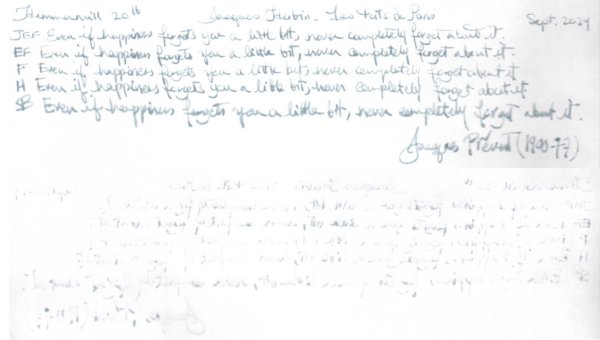 Hammermill 20 lb Jacques Herbin. Les toits de Paris Sept. 2024
JEF Even if happiness forgets you a little bit, never completely forget about it.
EF Even if happiness forgets you a little bit, never completely forget about it.
F Even if happiness forgets you a little bit, never completely forget about it
M Even if happiness forgets you a little bit, never completely forget about it.
SB Even if happiness forgets you a little bit, never completely forget about it.
Jacques Prévert (1900-77)